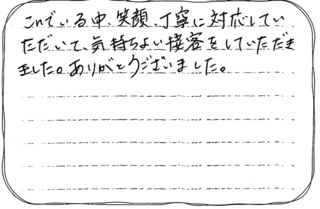 こんでいる中、笑顔、丁寧に対応してい
ただいて、気持ちよい接客をしていただき
ました。ありがとうございました。